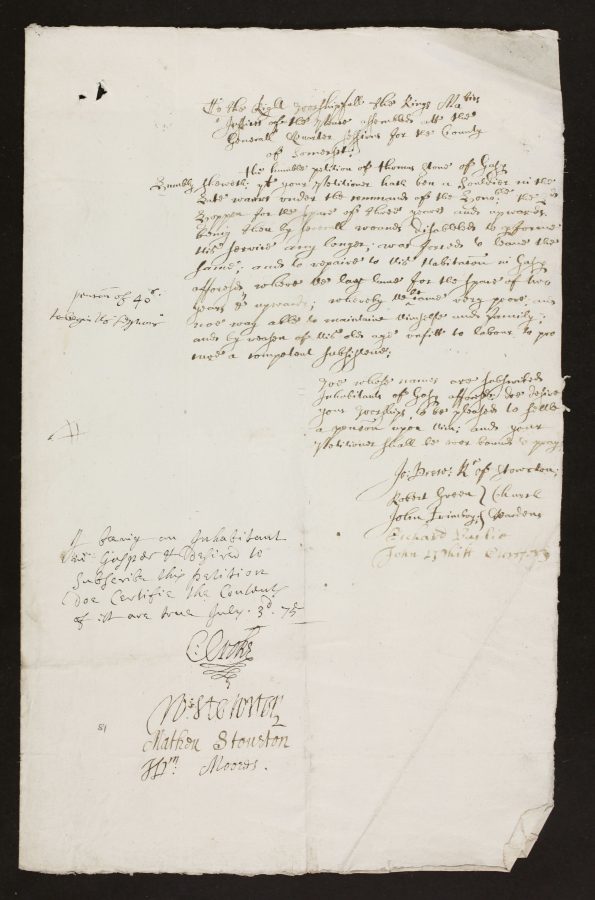 To the Right worshipfull the Kings Ma:ties
Justices of the Peace assembled att the
Generall Quarter Sessions for the County
of Somerset.
The humble petition of Thomas Stone of Gasp
Humbly sheweth yt your Petitioner hath ben a Souldier in the
Late warrs under the command of the Hono:ble
for the space of three yeares and upwards
being then by severall wounds disabled to performe
this service any longer, was forced to leave the
same; and to repaire to his Habitation in Gasp
aforesaid where he lay lame for the space of two
years & upwards; whereby he came very poore, and
noe way able to maintaine himselfe and family;
and by reason of his old age unfitt to labour to pro
cure a competent subsistence;
Wee whose names are subscribed
Inhabitants of Gasp aforesaid doe desire
your Worships to be pleased to settle
a pencon upon him; and your
Petitioner shall be ever bound to pray
pencon of 40s.
to begin this
Jo: Rr of Stourton;
Robert Green } Church
John } Wardens
Richard
John
I being an Inhabitant
Gasper & Desired to
Subscribe this Petition
Doe Certifie the Contents
of it are true July. 3d. 75
C: Cooke
Wm Stourton
Mathew Stourton
Wm: Moores.
81